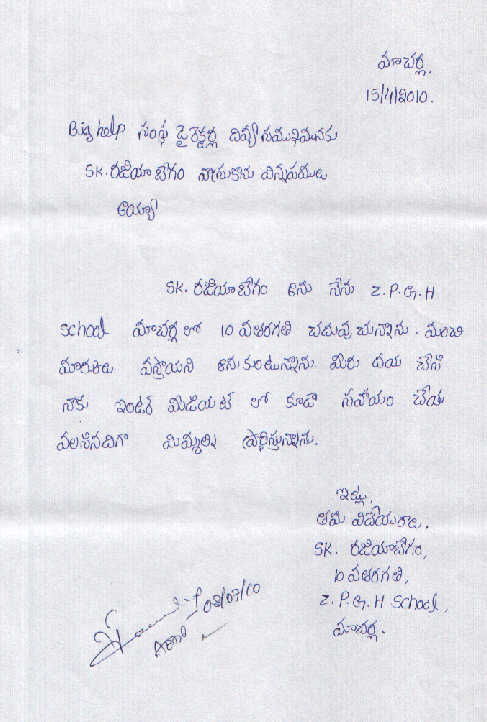 మాచర్ల.
15/4/2010.
Big help సంస్థ డైరెక్టర్ల దివ్య సముఖమునకు
SK. రజియా బేగం వ్రాసుకొను విన్నపములు
అయ్యా!
SK. రజియాబేగం అను నేను Z.P.G.H
school మాచర్ల లో 10 వతరగతి చదువుచున్నాను. మంచి
మార్కులు వస్తాయని అనుకుంటున్నాను. మీరు దయ చేసి
నాకు ఇంటర్ మీడియట్ లో కూడా సహాయం చేయ
వలసినదిగా మిమ్మల్ని ప్రార్థిస్తున్నాను.
ఇట్లు,
తమ విధేయురాలు.
SK. రజియాబేగం,
10 వతరగతి,
Z.P.G.H School,
మాచర్ల.
03/07/10